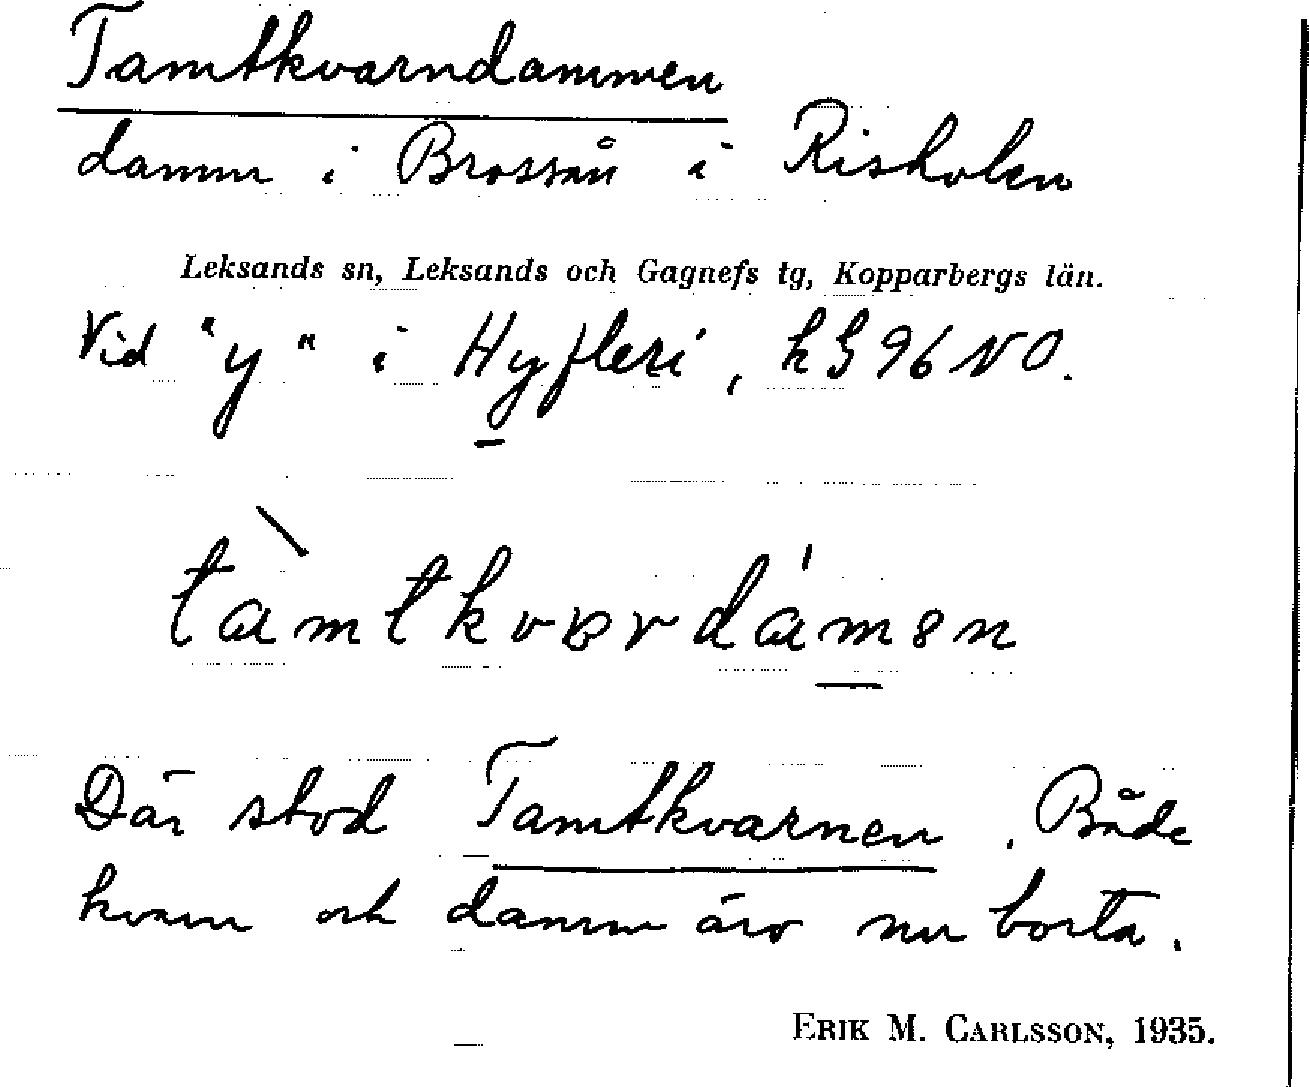 Tamtkvarndammen
damm i Brossån i Risholen
Leksands sn, Leksands och Gagnefs tg, Kopparbergs län.
Vid "y" i Hyfleri, kB 96 NO.
tàmtkvɒrdámən
Där stod Tamtkvarnen. Både
kvarn och damm äro nu borta.
ERIK M. CARLSSON, 1935.